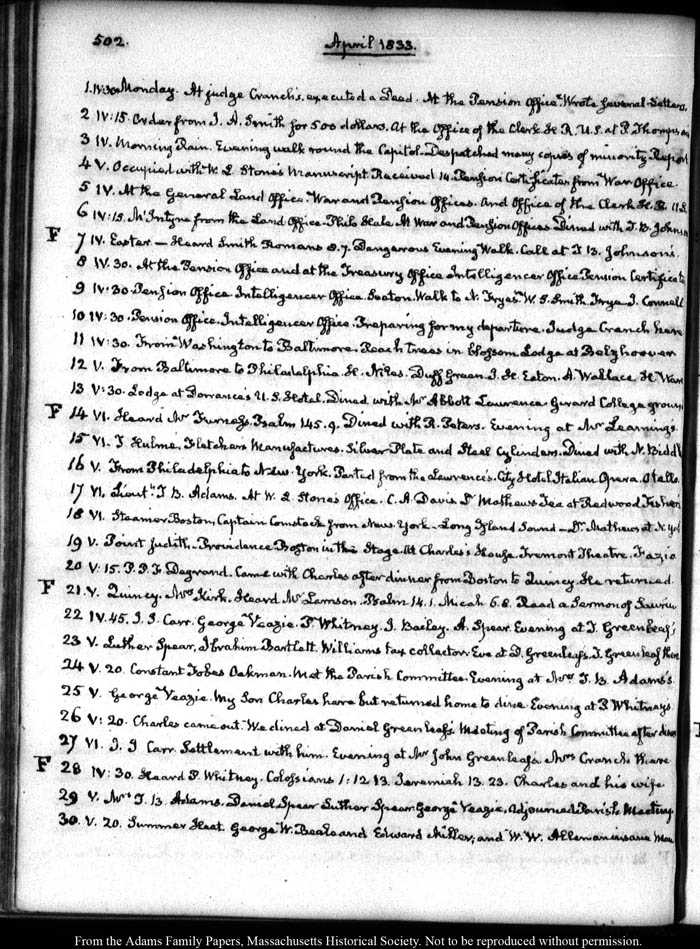 502.
April 1833.
1. IV:30. Monday. At judge Cranch's, executed a Deed. At the Pension Office. Wrote several Letters.
2 IV:15. Order from J. A. Smith for 500 dollars. At the Office of the Clerk H. R. U.S. at P. Thompson
3 IV. Morning Rain. Evening walk round the Capitol. Despatched many copies of minority Report
4 V. Occupied with W. L. Stone's Manuscript. Received 14. Pension Certificates from War Office.
5 IV. At the General Land Office. War and Pension Offices. And Office of the Clerk H. R. U.S.
6 IV:15. McIntyre from the Land Office. Phil: Hale. At War and Pension Offices Dined with T. B. Johnson
F
7 IV. Easter — Heard Smith Romans 8.7. Dangerous Evening Walk. Call at T. B. Johnson's.
8 IV.30. At the Pension Office and at the Treasury Office Intelligencer Office Pension Certificate
9 IV:30 Pension Office. Intelligencer Office. Seaton. Walk to N. Frye's. W. S. Smith. Frye. J. Connell
10 IV:30. Pension Office. Intelligencer Office. Preparing for my departure. Judge Cranch here
11 IV:30. From Washington to Baltimore. Peach trees in blossom. Lodge at Belzhoover
12 V. From Baltimore to Philadelphia H. Niles. Duff Green J. H. Eaton. A. Wallace H Ware
13 V:30. Lodge at Dorrance's U.S. Hotel. Dined with Mr Abbott Lawrence Girard College groun
F
14 VI. Heard Mr Furness. Psalm 145.9. Dined with R. Peters. Evening at Mrs Leaming's
15 VI. T. Hulme. Fletcher's Manufactures. Silver Plate and Steel Cylinders. Dined with N. Bidd
16 V. From Philadelphia to New-York. Parted from the Lawrence's. City Hotel Italian Opera. Otello.
17 VI. Lieutt. J B. Adams. At W. L. Stone's Office. C. A. Davis. Dr Mathews Tea at Redwood Fisher
18 VI. Steamer Boston, Captain Comstock from New-York. Long Island Sound — Dr. Mathews at N. Yo
19 V. Point Judith. Providence Boston in the Stage. At Charles's House. Tremont Theatre. Fazio
20 V:15. P. P. F. Degrand. Came with Charles after dinner from Boston to Quincy. He returned.
F
21. V. Quincy. Mrs Kirk. Heard Mr Lamson. Psalm 14.1. Micah 6.8. Read a Sermon of Saurin
22 IV.45. J. J. Carr. George Veazie. P. Whitney. J. Bailey. A. Spear. Evening at J. Greenleaf's
23 V. Luther Spear, Ibrahim Bartlett. Williams tax collector. Eve at D. Greenleaf's. T. Greenleaf there
24 V. 20. Constant Fobes Oakman. Met the Parish Committee. Evening at Mrs T. B. Adams's
25 V. George Veazie. My Son Charles here but returned home to dine. Evening at P. Whitney's
26 V: 20. Charles came out. We dined at Daniel Greenleaf's. Meeting of Parish Committee after dinn
27 VI. J. J Carr. Settlement with him. Evening at Mr John Greenleaf's. Mrs Cranch there
F
28 IV: 30. Heard P. Whitney. Colossians 1:12 13. Jeremiah 13. 23. Charles and his wife
29 V. Mrs T. B. Adams. Daniel Spear Luther Spear George Veazie. Adjourned Parish Meeting
30. V. 20. Summer Heat. George W. Beale and Edward Miller, and W. W. Alleman
From the Adams Family Papers, Massachusetts Historical Society. Not to be reproduced without permission.